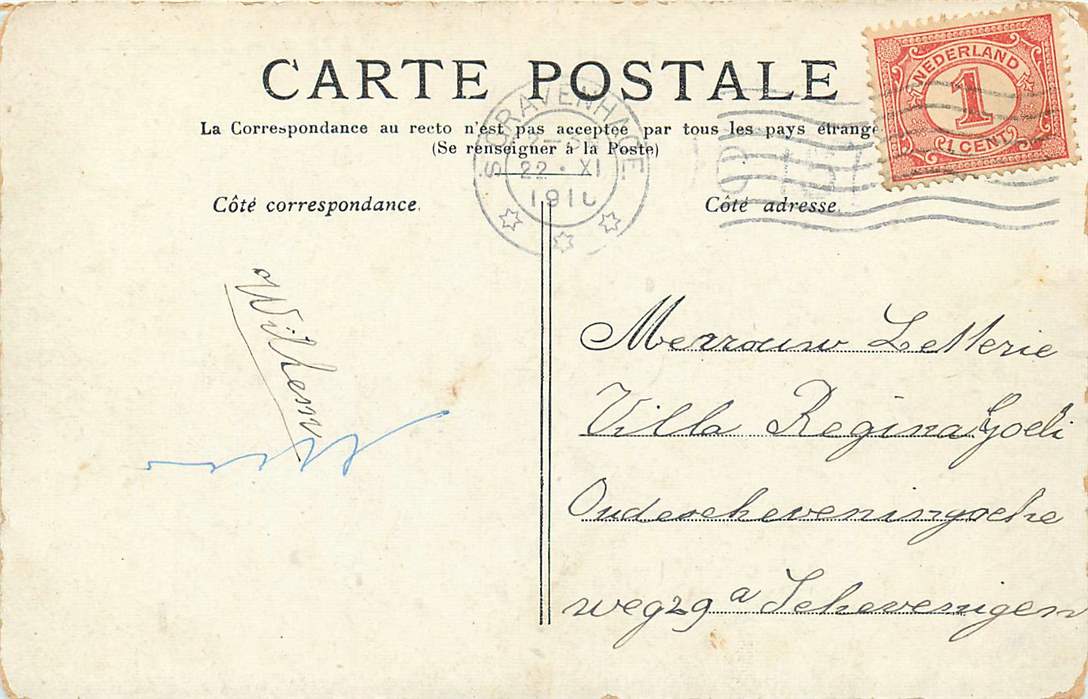 CARTE POSTALE
La Correspondance au recto n'est pas acceptée par tous les pays étrange
(Se renseigner à la Poste)
NEDERLAND
1
1 CENT
S GRAVENHAGE
22 · XI
191
Côté correspondance.
Côté adresse.
Wilhem
Mevrouw Letterie
Villa Regina
Oudescheveningsche
weg 29 a Scheveningen